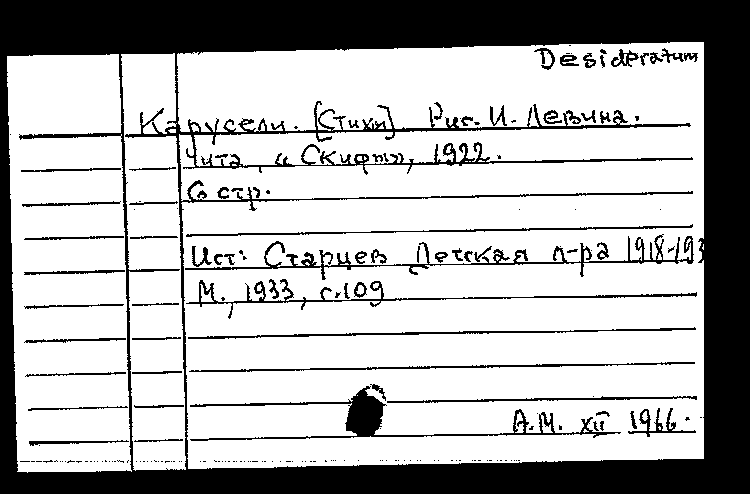 Desideratum
Карусели. [Стихи] Рис. И. Левина.
Чита, «Скифы», 1922.
6 стр.
Ист: Старцев Детская л-ра 1918-193
М., 1933, с.109
А.М. XII 1966.